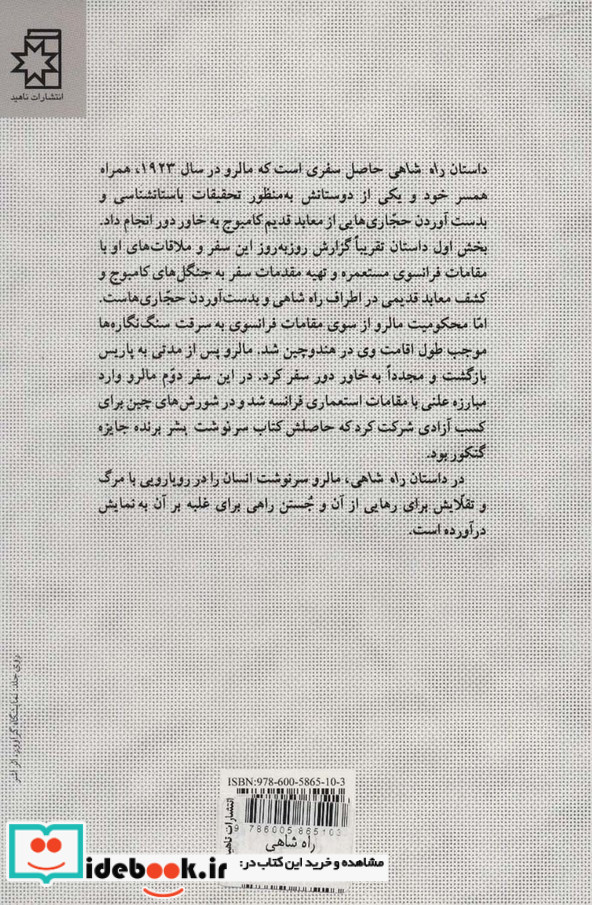 انتشارات ناهید
داستان راه شاهی حاصل سفری است که مالرو در سال ۱۹۲۳، همراه
همسر خود و یکی از دوستانش به‌منظور تحقیقات باستانشناسی و
بدست آوردن حجّاری‌هایی از معابد قدیم کامبوج به خاور دور انجام داد.
بخش اول داستان تقریباً گزارش روزبه‌روز این سفر و ملاقات‌های او با
مقامات فرانسوی مستعمره و تهیه مقدمات سفر به جنگل‌های کامبوج و
کشف معابد قدیمی در اطراف راه شاهی و بدست‌آوردن حجّاری‌هاست.
امّا محکومیت مالرو از سوی مقامات فرانسوی به سرقت سنگ‌نگاره‌ها
موجب طول اقامت وی در هندوچین شد. مالرو پس از مدتی به پاریس
بازگشت و مجدداً به خاور دور سفر کرد. در این سفر دوّم مالرو وارد
مبارزه علنی با مقامات استعماری فرانسه شد و در شورش‌های چین برای
کسب آزادی شرکت کرد که حاصلش کتاب سرنوشت بشر برنده جایزه
گنکور بود.
در داستان راه شاهی، مالرو سرنوشت انسان را در رویارویی با مرگ
و تقلایش برای رهایی از آن و جُستن راهی برای غلبه بر آن به نمایش
درآورده است.
روی جلد: نمایشگاه گراوور،
ISBN:978-600-5865-10-3
انتشارات ناهید
9 786005 865103
راه شاهی
مشاهده و خرید این کتاب در:
idebook.ir